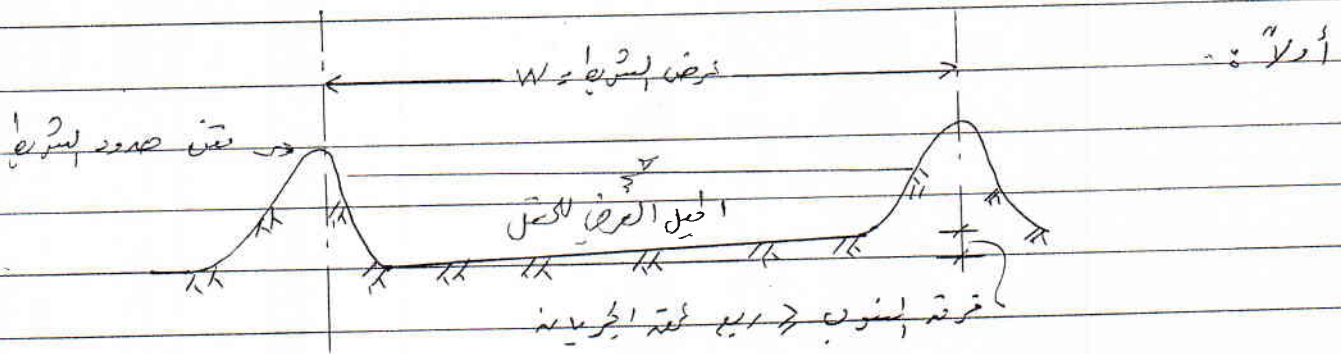 أولاً :-
عرض الشريط = W
متن حدود الشريط
الميل العرضي للحقل
فرق المنسوب > ربع عمق الجريان